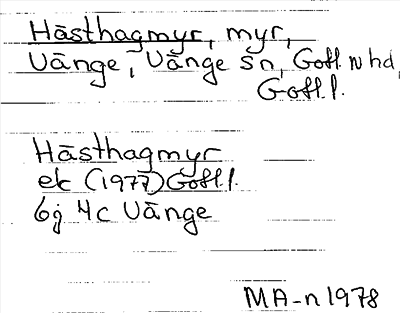 Hästhagmyr, myr,
Vänge, Vänge sn, Gotl. n hd,
Gotl. l.
Hästhagmyr
ek (1977) Gotl. l.
6j 4c Vänge
MA-n 1978